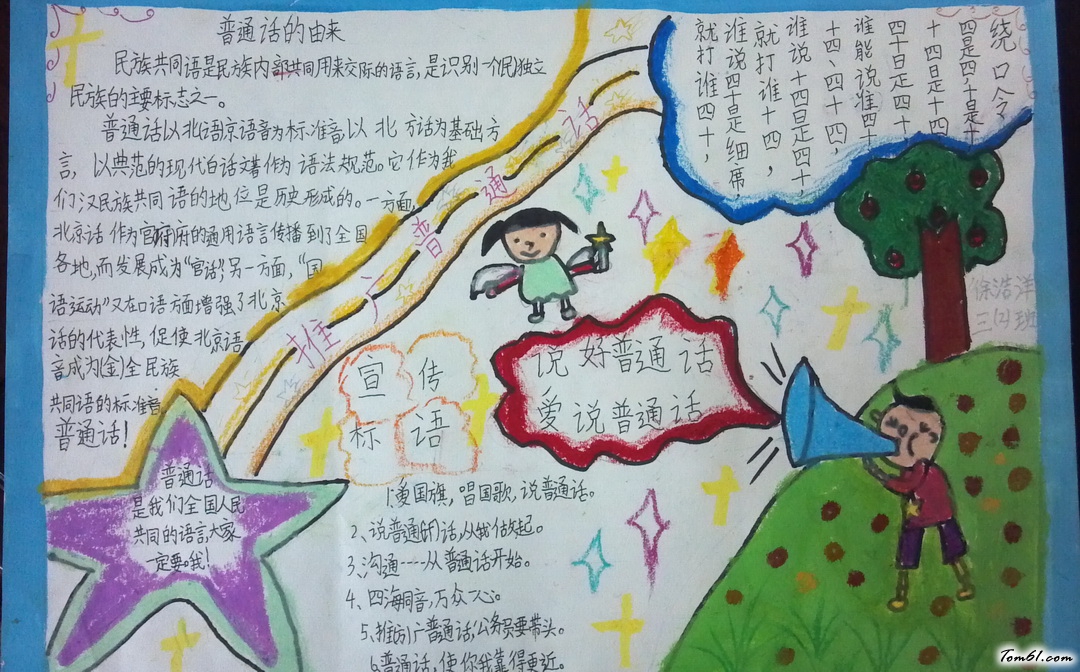 普通话的由来
民族共同语是民族内部共同用来交际的语言,是识别一个民独立
民族的主要标志之一。
普通话以北语京语音为标准音,以北方话为基础方
言,以典范的现代白话文著作为语法规范。它作为我
们汉民族共同语的地位是历史形成的。一方面,
北京话作为官府的通用语言传播到了全国
各地,而发展成为“官话”,另一方面,“国
语运动”又在口语方面增强了北京
话的代表性,促使北京语
音成为(全)全民族
共同语的标准音
普通话!
推广普通话
绕口令
四是四十是十
十四是十四
四十是四十
谁能说准四十
十四、四十四,
谁说十四是四十,
就打谁十四,
谁说四十是细席,
就打谁四十,
徐浩洋
三(2)班
说好普通话
爱说普通话
宣传
标语
普通话
是我们全国人民
共同的语言,大家
一定要
我!
1、爱国旗,唱国歌,说普通话。
2、说普通话,从我做起。
3、沟通----从普通话开始。
4、四海同音,万众一心。
5、推广普通话,公务员要带头。
6、普通话,使你我靠得更近。
Tom61.com